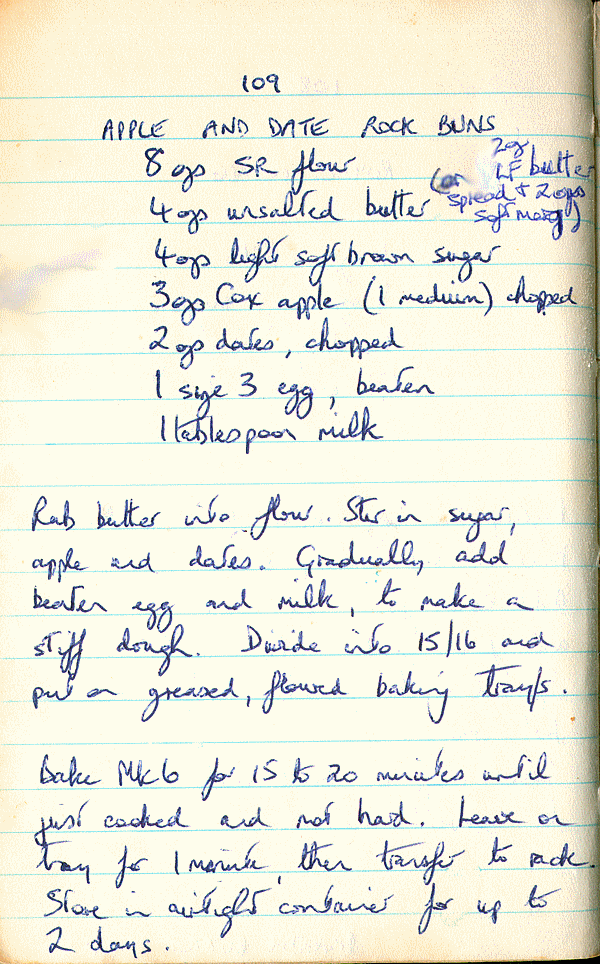 109
APPLE AND DATE ROCK BUNS
8 ozs SR flour
4 ozs unsalted butter (or 2oz LF butter spread + 2 ozs soft marg)
4ozs light soft brown sugar
3ozs Cox apple (1 medium) chopped
2 ozs dates, chopped
1 size 3 egg, beaten
1 tablespoon milk
Rub butter into flour. Stir in sugar,
apple and dates. Gradually add
beaten egg and milk, to make a
stiff dough. Divide into 15/16 and
put on greased, floured baking tray/s.
Bake Mk6 for 15 to 20 minutes until
just cooked and not hard. Leave on
tray for 1 minute, then transfer to rack.
Store in airtight container for up to
2 days.